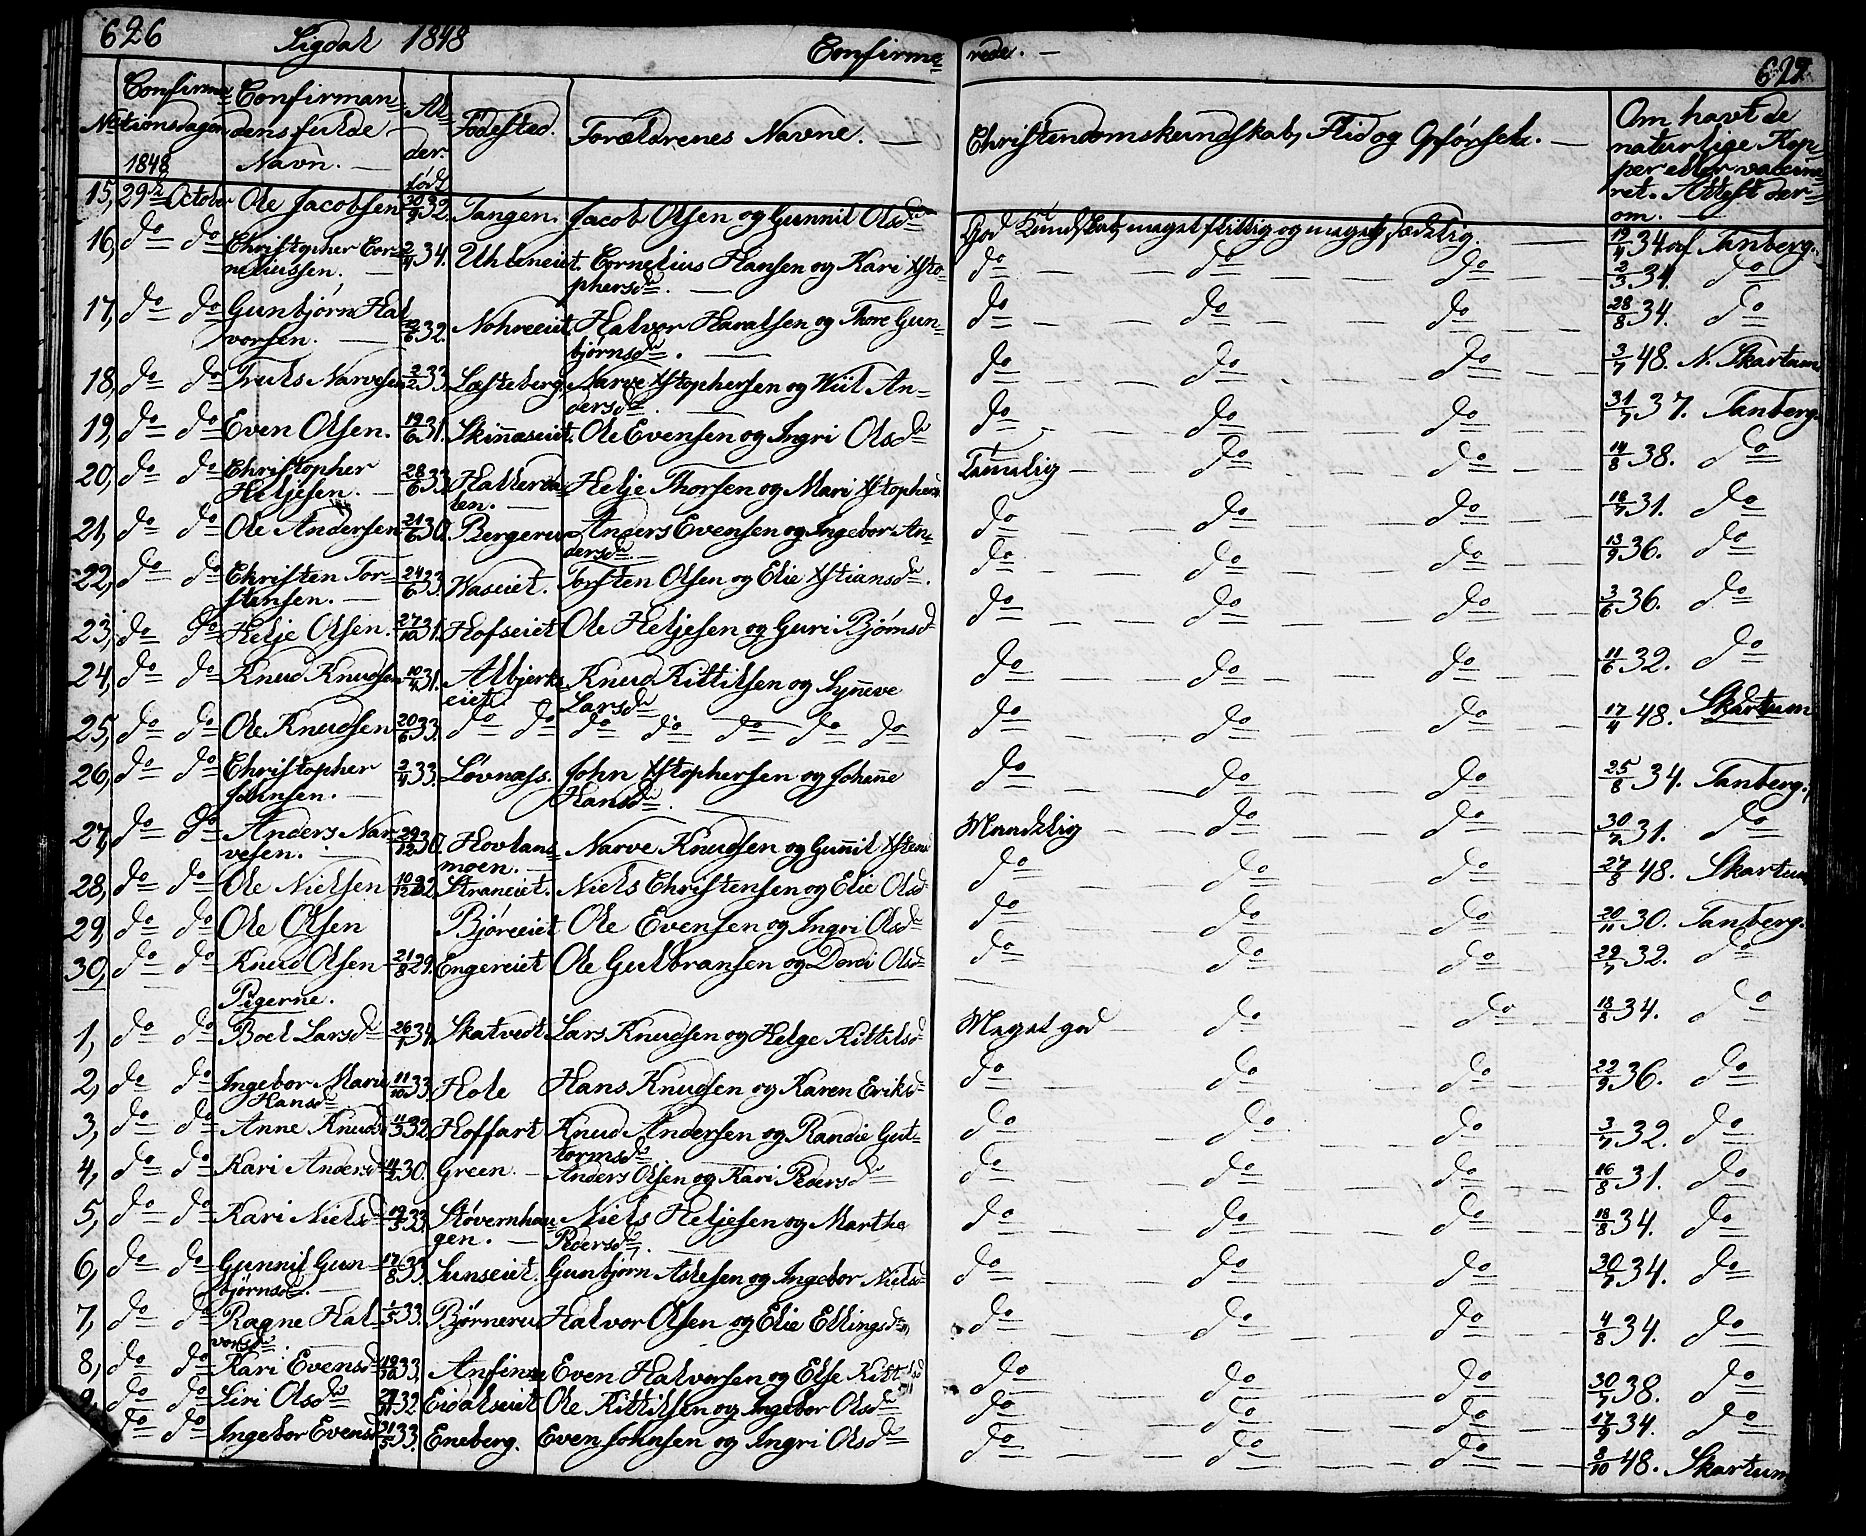 626 Sigdal 1848 Confirme= rede. — 627.
No Confirma=tionsdagen 1848 Confirmandens fulde Navn. — Alder. født Fødested. Forældrenes Navne. — Christendomskundskab, Flid og Opførsel. — Om havt de naturlige Kopper eller vaccineret. Attest derom. —
15, 29de October Ole Jacobsen 32. Tangen. Jacob Olsen og Gunnil Olsdr God Kundskab, meget flittig og meget sædelig. — 19/4 34 af Tanberg.
16, do do Christopher Cor=neliussen. — 2/4 34. Uhleneiet. Cornelius Hansen og Kari Xsto=phersdr. — do — do — do 2/3 34. do
17, do do Gunbjørn Hal=vorsen. — 32. Nohreeiet. Halvor Haralsen og Thore Gun=bjørnsdr. — do — do — do — 28/8 34. do
18, do do Truls Narvesen 2/2 33. Lasteberg. Narve Xstophersen og Kiil An=dersdr. — do — do — do — 3/7 48. N. Skartum
19, do do Even Olsen. 19/6 31. Skinnaseiet. Ole Evensen og Ingri Olsdr do — do — do — 31/7 37. Tanberg.
20, do do Christopher Heljesen. — 28/6 33. Helje Thorsen og Mari Xstophers Tamelig — do — do — 14/8 38. do
21, do do Ole Andersen 21/6 30. Bergerud Anders Evensen og Ingebor An=dersdr — do — do — do — 18/7 31. do
22, do do Christen Tor=stensen. — 24/6 33. Waseiet. Torsten Olsen og Elie Xstiansdr. do — do — do — 13/9 36. do
23, do do Helje Olsen. 27/10 31. Hofseiet Ole Heljesen og Guri Bjørnsd do — do — do — 3/6 36. do
24, do do Knud Knudsen 31. Albjerks=eiet Knud Kittilsen og Synneve Larsdr do — do — do — 11/6 32. do
25, do do Ole Knudsen 20/6 33. do do do do do do do do — do — do — 17/4 48. Skartum
26, do do Christopher Johnsen. — 2/4 33. Løvnæss. John Xstophersen og Johanne Hansdr. — do — do — do — 25/8 34. Tanberg.
27, do do Anders Nar=vesen. — 29/12 30. Hovlans=moen. — Narve Knudsen og Gunnil Maadelig — do — do — 30/7 31. do
28, do do Ole Nielsen 32. Straneiet. Niels Christensen og Elie Olsd do — do — do — 27/8 48. Skartum
29, do do Ole Olsen Bjøreeiet Ole Evensen og Ingri Olsdr do — do — do — 20/11 30. Tanberg.
30, do do Knud Olsen 21/8 29. Engereiet Ole Gulbransen og Dordi Olsdr do — do — do — 29/7 32. do
Pigerne.
1, do do Boel Larsdr 26/7 34. Skatvedt. Lars Knudsen og Helge Kittilsd Meget god do do 18/8 34. do
2, do do Ingebor Marie Hansdr 11/10 33. Hole Hans Knudsen og Karen Eriksd do — do — do — 22/9 36. do
3, do do Anne Knuds 11/3 32. Hoffart Knud Andersen og Randie Gut=tormsdr do — do — do — 3/7 32. do
4, do do Kari Andersd 30. Green. — Anders Olsen og Kari Pedersdr do — do — do — 16/8 31. do
5, do do Kari Nielsd 19/3 33. Støvernhau=gen. — Niels Heljesen og Marthe Pedersdr. — do — do — do — 18/8 34. do
6, do do Gunnil Gun=bjørnsd. — 17/8 33. Sunseiet. Gunbjørn Aslesen og Ingebor Nielsd do — do — do — 30/7 34. do
7, do do Ragne Hal=vorsdr. 1/3 33. Bjørnerud Halvor Olsen og Elie Ellingsdr do — do — do — 4/8 34. do
8, do do Kari Evensd 33. Even Halvorsen og Else do — do — do — 30/7 38. do
9, do do Siri Olsdr 32. Eidalseiet Ole Kittilsen og Ingebor Olsdr do — do — do — 17/9 34. do
do do Ingebor Evensd 33. Eneberg. Even Johnsen og Ingri Olsdr do — do — do — 8/10 48. Skartum